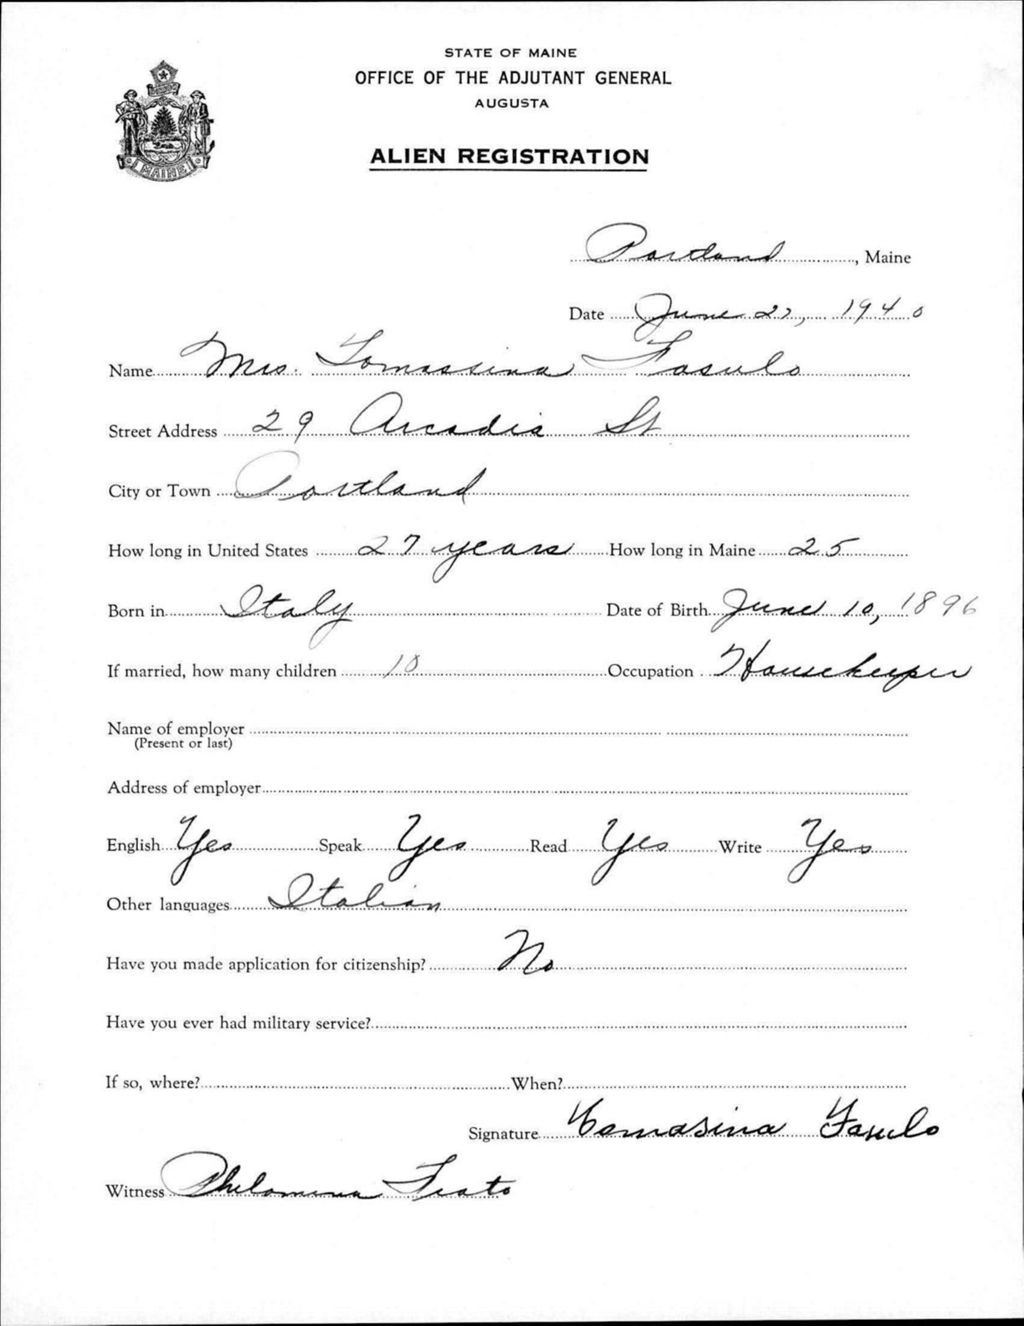 STATE OF MAINE
OFFICE OF THE ADJUTANT GENERAL
AUGUSTA
ALIEN REGISTRATION
MAINE
Portland, Maine
Date June 27, 1940
Name Mrs. Tomassina Fasulo
Street Address 29 Arcadia St
City or Town Portland
How long in United States 27 years How long in Maine 25
Born in Italy Date of Birth June 10, 1896
If married, how many children 10 Occupation Housekeeper
Name of employer
(Present or last)
Address of employer
English Yes Speak Yes Read Yes Write Yes
Other languages Italian
Have you made application for citizenship? No
Have you ever had military service?
If so, where? When?
Signature Tomasina Fasulo
Witness Philomena